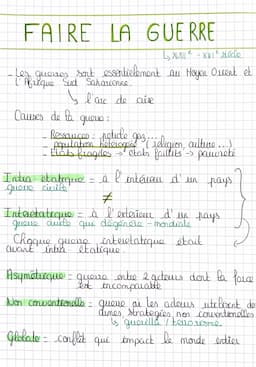 FAIRE LA GUERRE
↳ XVIIIe - XXIe siècle
- Les guerres sont essentiellement au Moyen Orient et
l'Afrique Sud Saharienne.
↳ l'arc de crise
Causes de la guerre :
- Ressources : pétrole gaz...
- population hétérogène (religion, culture...)
- Etats fragiles → états faillits → pauvreté
Intra étatique = à l'intérieur d'un pays
guerre civile
≠
Interétatique = à l'extérieur d'un pays
guerre civile qui dégénère - mondiale
Chaque guerre interétatique était
avant intra étatique.
Asymétrique = guerre entre 2 acteurs dont la force
est incomparable
Non conventionnelle = guerre où les acteurs utilisent des
armes, stratégies non conventionnelles
↳ guerilla / terrorisme.
Globale = conflit qui impact le monde entier